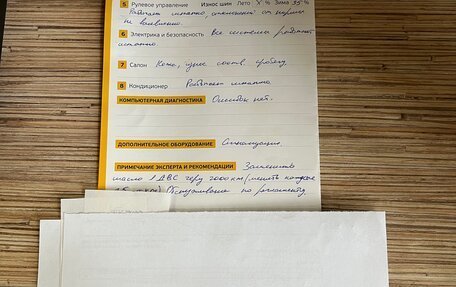 5 Рулевое управление Износ шин Лето X % Зима 35 %
Работает штатно, отклонений от нормы
не выявлено.
6 Электрика и безопасность Все системы работают
штатно.
7 Салон Кожа, износ соотв. пробегу.
8 Кондиционер Работает штатно
КОМПЬЮТЕРНАЯ ДИАГНОСТИКА Ошибок нет.
ДОПОЛНИТЕЛЬНОЕ ОБОРУДОВАНИЕ Сигнализация.
ПРИМЕЧАНИЕ ЭКСПЕРТА И РЕКОМЕНДАЦИИ Заменить
масло ДВС через 2000 км/менять каждые
Обслуживание по регламенту.